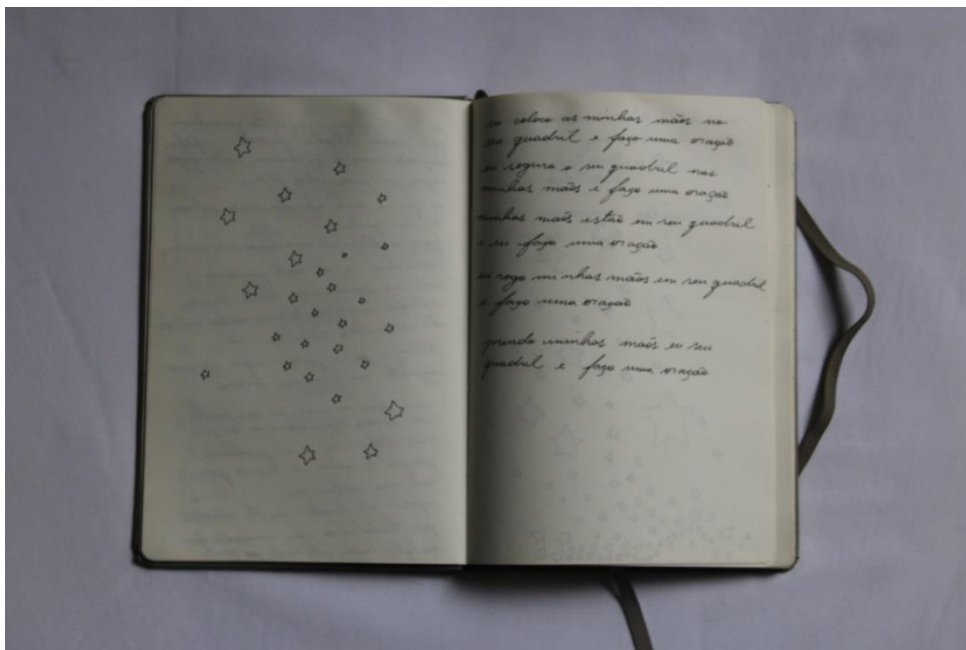 eu coloco as minhas mãos no
seu quadril e faço uma oração
eu seguro o seu quadril nas
minhas mãos e faço uma oração
minhas mãos estão em seu quadril
e eu faço uma oração
eu rogo minhas mãos em seu quadril
e faço uma oração
prendo minhas mãos eu seu
quadril e faço uma oração